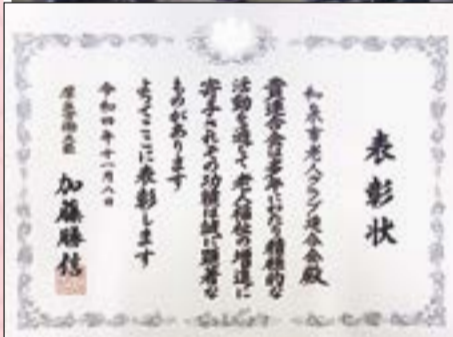 表彰状
和泉市老人クラブ連合会殿
貴連合会は多年にわたり積極的な
活動を通じて老人福祉の増進に
寄与されその功績は誠に顕著な
ものがあります
よってここに表彰します
令和四年十一月八日
厚生労働大臣 加藤勝信